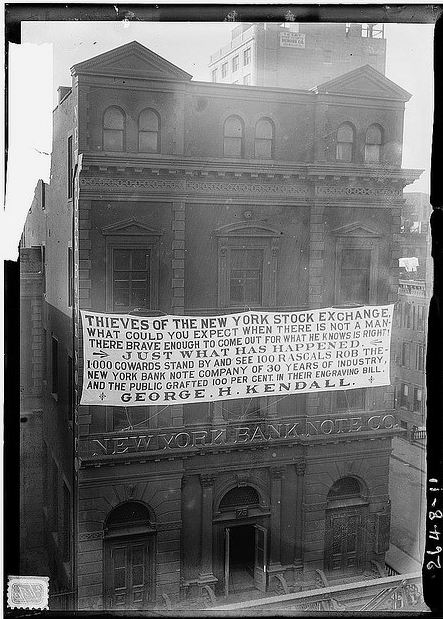 THIEVES OF THE NEW YORK STOCK EXCHANGE,
WHAT COULD YOU EXPECT WHEN THERE IS NOT A MAN-
THERE BRAVE ENOUGH TO COME OUT FOR WHAT HE KNOWS IS RIGHT!
JUST WHAT HAS HAPPENED.
1,000 COWARDS STAND BY AND SEE 100 RASCALS ROB THE-
NEW YORK BANK NOTE COMPANY OF 30 YEARS OF INDUSTRY,
AND THE PUBLIC GRAFTED 100 PER CENT. IN THEIR ENGRAVING BILL.
GEORGE. H. KENDALL.
NEW YORK BANK NOTE CO.
75
264 8-11